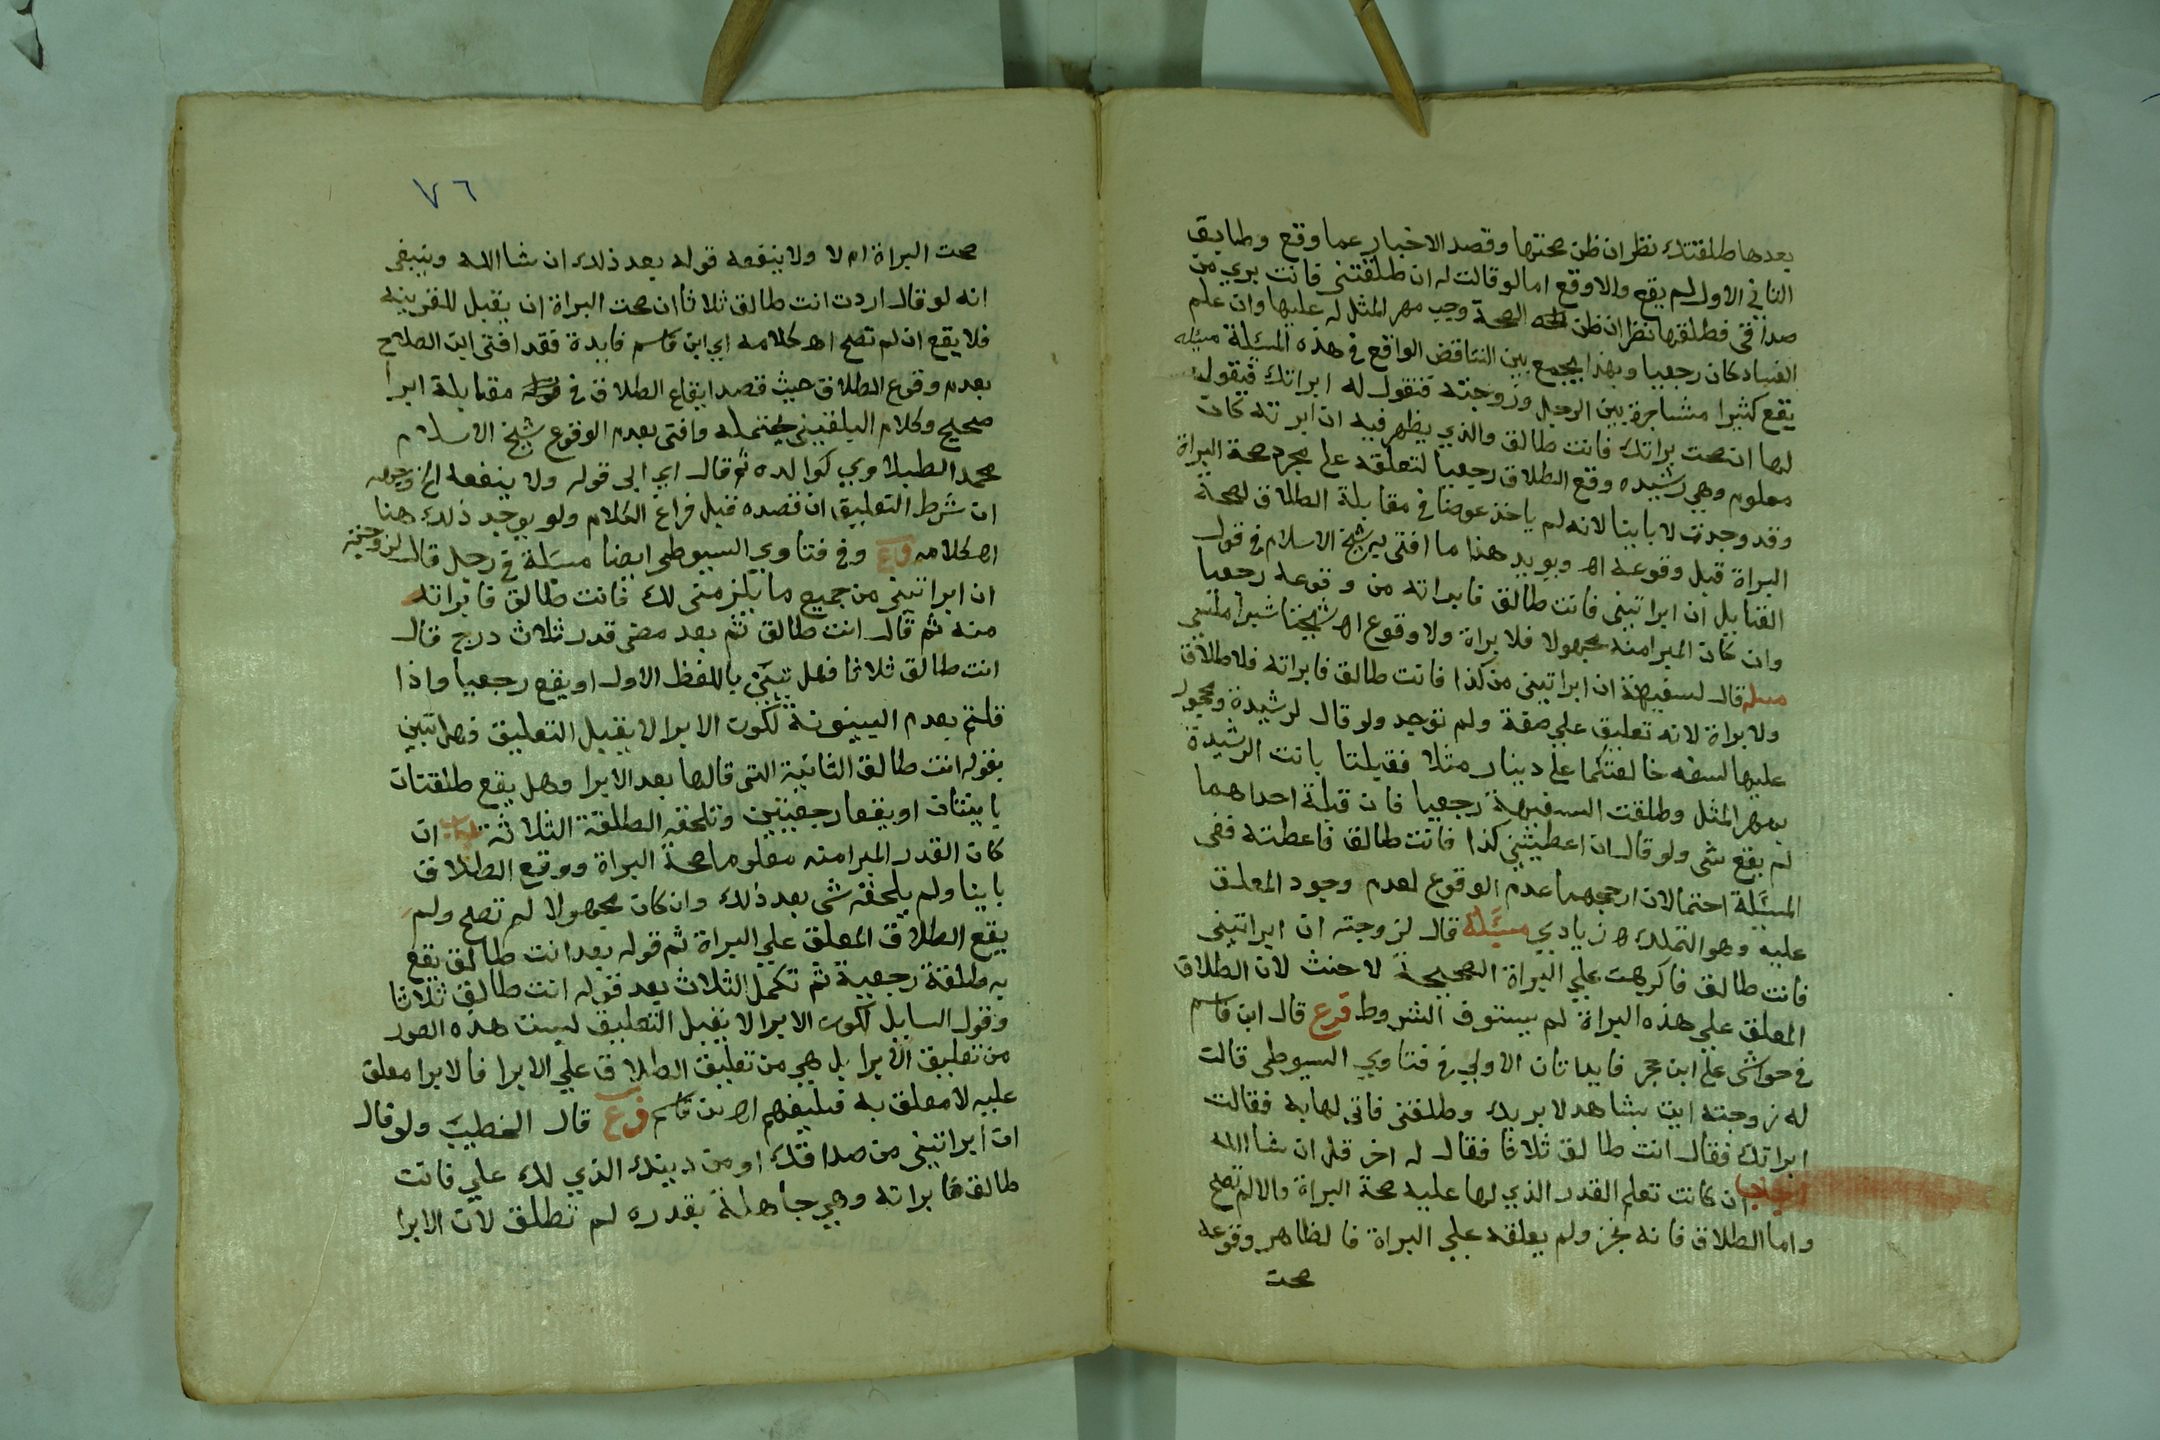 بعدها طلقتك نظر ان ظن صحتها وقصد الاخبار عما وقع وطابق
الثاني الاول لم يقع والا وقع اما لو قالت له ان طلقتني فانت بري من
صداقي فطلقها نظر ان ظن الصحة وجب مهر المثل له عليها وان علم
الفساد كان رجعيا وبهذا يجمع بين التناقض الواقع في هذه المسئلة مسئله
يقع كثيرا مشاجرة بين الرجل وزوجته فتقول له ابراتك فيقول
لها ان صحت براتك فانت طالق والذي يظهر فيه ان ابرته كان
معلوم وهي رشيده وقع الطلاق رجعيا لتعلقه على مجرد صحة البراة
وقد وجدت لا باينا لانه لم ياخذ عوضا في مقابلة الطلاق لصحة
البراة قبل وقوعه اه ويويد هذا ما افتى به شيخ الاسلام في قول
القايل ان ابراتيني فانت طالق فابراته من وقوعه رجعيا
وان كان المبرا منه مجهولا فلا براة ولا وقوع اه شيخنا شبراملسي
مسله قال لسفيهة ان ابراتيني من كذا فانت طالق فابراته فلا طلاق
ولا براة لانه تعليق على صفة ولم توجد ولو قال لرشيدة ومحجور
عليها لسفه خالعتكما على دينار مثلا فقبلتا بانت الرشيدة
بمهر المثل وطلقت السفيهة رجعيا فان قبلة احداهما
لم يقع شي ولو قال ان اعطيتني كذا فانت طالق فاعطته ففي
المسئلة احتمالان ارجحهما عدم الوقوع لعدم وجود المعلق
عليه وهو التملك اه زيادي مسئلة قال لزوجته ان ابراتيني
فانت طالق فاكرهت على البراة الصحيحة لا حنث لان الطلاق
المعلق على هذه البراة لم يستوف الشروط فرع قال ابن قاسم
في حواشي على ابن حجر فايدتان الاولي في فتاوي السيوطي قالت
له زوجته ايت بشاهد لابريك وطلقني فاتي لها به فقالت
ابراتك فقال انت طالق ثلاثا فقال له اخر قل ان شا الله
الجواب ان كانت تعلم القدر الذي لها عليه صحة البراة والا لم تصح
واما الطلاق فانه نجز ولم يعلقه على البراة فالظاهر وقوعه
صحت
٧٦
صحت البراة ام لا ولا ينفعه قوله بعد ذلك ان شا الله وينبغي
انه لو قال اردت انت طالق ثلاثا ان صحت البراة ان يقبل للقرينه
فلا يقع ان لم تصح اه كلامه اي ابن قاسم فايدة فقد افتى ابن الصلاح
بعدم وقوع الطلاق حيث قصد ايقاع الطلاق في مقابلة ابرا
صحيح وكلام البلقيني يحتمله وافتى بعدم الوقوع شيخ الاسلام
محمد الطبلاوي كوالده ثم قال اي الى قوله ولا ينفعه الخ وجهه
ان شرط التعليق ان قصده قبل فراغ الكلام ولو يوجد ذلك هنا
اه كلامه فرع وفي فتاوي السيوطي ايضا مسئلة في رجل قال لزوجته
ان ابراتيني من جميع ما يلزمني لك فانت طالق فابراته
منه ثم قال انت طالق ثم بعد مضي قدر ثلاث درج قال
انت طالق ثلاثا فهل تبين باللفظ الاول او يقع رجعيا واذا
قلتم بعدم البينونة لكون الابرا لا يقبل التعليق فهل تبين
بقوله انت طالق الثانية التي قالها بعد الابرا وهل يقع طلقتان
باينتان او يقعا رجعيتين وتلحقه الطلقة الثلاثة الجواب ان
كان القدر المبرا منه معلوما صحة البراة ووقع الطلاق
باينا ولم يلحقه شي بعد ذلك وان كان مجهولا لم تصح ولم
يقع الطلاق المعلق علي البراة ثم قوله بعد انت طالق يقع
به طلقة رجعية ثم تكمل الثلاث بعد قوله انت طالق ثلاثا
وقول السايل لكون الابرا لا يقبل التعليق ليست هذه الصور
من تعليق الابرا بل هي من تعليق الطلاق علي الابرا فالابرا معلق
عليه لا معلق به فليفهم اه بن قاسم فرع قال الخطيب ولو قال
ان ابراتيني من صداقك او من دينك الذي لك علي فانت
طالق فابراته وهي جاهلة بقدره لم تطلق لان الابرا